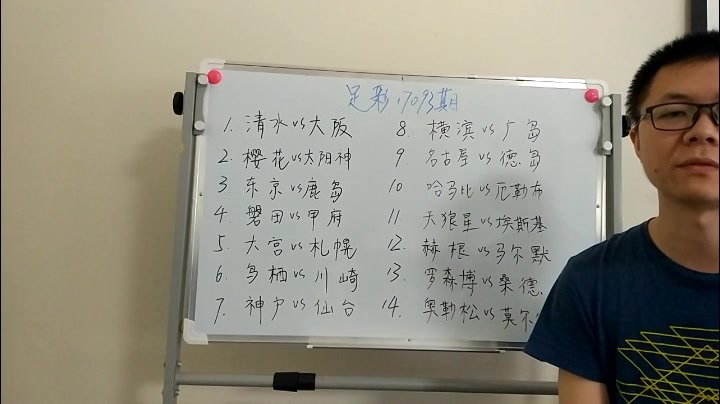 足彩17093期
1. 清水vs大阪
2. 樱花vs太阳神
3. 东京vs鹿岛
4. 磐田vs甲府
5. 大宫vs札幌
6. 鸟栖vs川崎
7. 神户vs仙台
8. 横滨vs广岛
9. 名古屋vs德岛
10 哈马比vs厄勒布
11. 天狼星vs埃斯基
12. 赫根vs马尔默
13. 罗森博vs桑德
14. 奥勒松vs莫尔